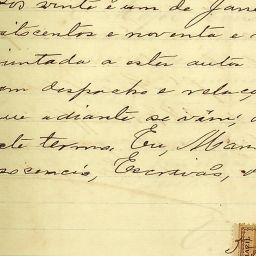 vinte e um de Jane
oitocentos e noventa e
juntada a estes autos
um despacho e relaç
que adiante se vêm; d
este termo. Eu, Man
nocencio, Escrivão, o